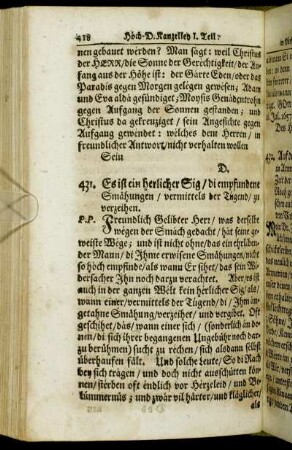 418 Höch-D. Kanzelley I. Teil:
nen gebauet werden? Man sagt: weil Christus
der HERR, die Sonne der Gerechtigkeit / der Auf-
fang aus der Höhe ist: der Gärte Eden / oder das
Paradis gegen Morgen gelegen gewesen; Adam
und Eva alda gesündiget; Moysis Genadentrohn
gegen Aufgang der Sonnen gestanden; und
Christus da gekreuziget / sein Angesichte gegen
Aufgang gewendet: welches dem Herren / in
freundlicher Antwort / nicht verhalten wollen
Sein
D.
431. Es ist ein herlicher Sig / di empfundene
Smähungen / vermittels der Tugend / zu
verzeihen.
P.P. Freundlich Gelibter Herr / was derselbe
wegen der Smach gedacht / hat seine ge-
weiste Wäge; und ist nicht ohne / das ein ehrliben-
der Mann / di Jhme erwisene Smähungen / nicht
so höch empfinde / als wann Er sihet / das sein Wi-
dersacher Jhn noch dazu verachtet. Aber / es ist
auch in der ganzen Welt kein herlicher Sig / als,
wann einer / vermittels der Tugend / di / Jhm an-
getahne Smähung / verzeihet / und vergibet. Oft
geschihet / das / wann einer sich / (sonderlich an de-
nen / di sich ihrer begangenen Ungebühr noch da-
zu berühmen) sucht zu rechen / sich alsdann selbst
überhaufen fält. Und solche Leute / So di Rach
bey sich tragen / und doch nicht ausschütten kön-
nen / störben oft endlich vor Herzeleid / und Be-
kümmernüs; und zwar vil härter / und kläglicher /
als